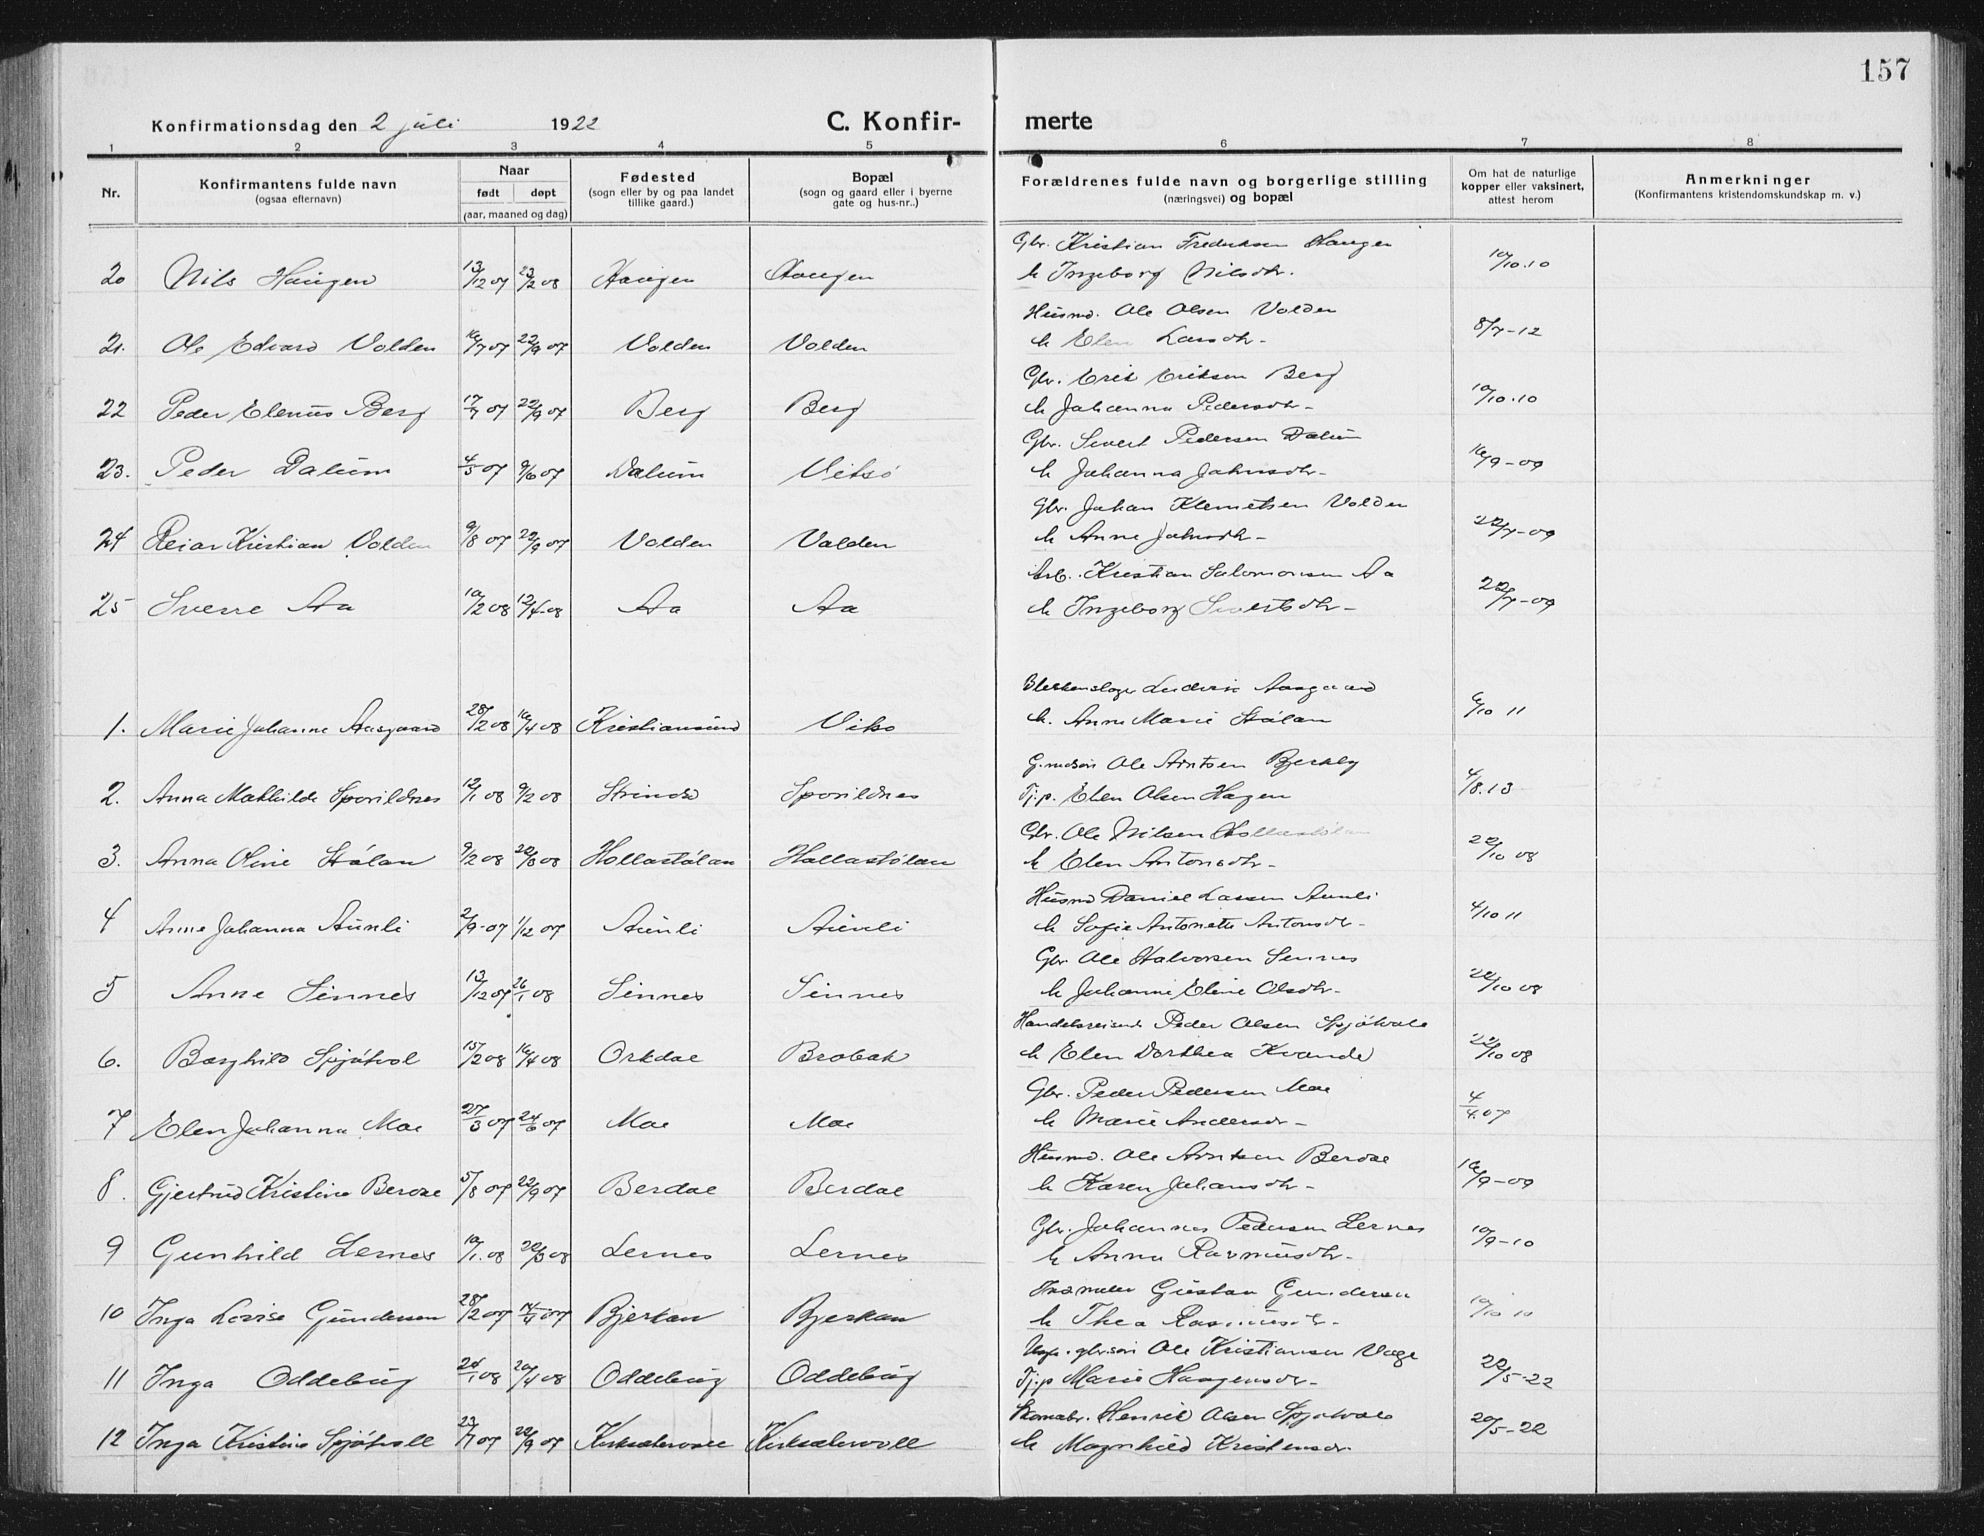 157
Konfirmationsdag den 2 juli 1922 C. Konfir- merte
1 2 3 4 5 6 7 8
Nr. Konfirmantens fulde navn (ogsaa efternavn) Naar født døpt (aar, maaned og dag) Fødested (sogn eller by og paa landet tillike gaard.) Bopæl (sogn og gaard eller i byerne gate og hus-nr..) Forældrenes fulde navn og borgerlige stilling (næringsvei) og bopæl Om hat de naturlige kopper eller vaksinert, attest herom Anmerkninger (Konfirmantens kristendomskundskap m. v.)
Gbr. Kristian Fredriksen Haugen
20 Nils Haugen 13/12 07 23/2 08 Haugen Haugen h Ingeborg Nilsdtr. 10/10.10
Husmd. Ole Olsen Volden
21. Ole Edvard Volden 16/7 07 22/9 07 Volden Volden h Elen Larsdtr- 8/7-12
Gbr. Erik Eriksen Berg
22 Peder Elenus Berg 17/7 07 22/9 07 Berg Berg h Johanna Pedersdtr- 10/10.10
Gbr. Sivert Pedersen Dalum
23. Peder Dalum 4/5 07 9/6 07 Dalum Vitsø h Johanna Johnsdtr- 16/9-09
Gbr. Johan Klemetsen Volden
24 Reiar Kristian Volden 9/8 07 22/9 07 Volden Volden h Anne Johnsdtr- 22/7-09
Arb. Kristian Salomonsen Aa
25 Sverre Aa 10/2 08 12/4-08 Aa Aa h Ingeborg Sivertsdtr- 22/7-09
Blikkenslager Ludvig Aasgaard
1. Marie Johanne Aasgaard 28/2 08 16/4 08 Kristiansund Vitsø h. Anne Marie Stølan 6/10 11
Ole Arntsen Bjerkly
2. Anna Mathilde Sporildnes 12/1 08 9/2 08 Strinda Sporildnes Tj.p. Elen Olsen Hagen 4/8.13
Gbr. Ole Nilsen Hollastølan
3. Anna Oline Stølan 9/2 08 22/3 08 Hollastølan Hollastølan h Elen Antonsdtr- 22/10 08
Husmd Daniel Larsen Aunli
4 Anne Johanna Aunli 2/9-07 1/12 07 Aunli Aunli h Sofie Antonette Antonsdr- 4/10 11
Gbr Ole Halvorsen Sinnes
5 Anne Sinnes 13/12 07 26/1 08 Sinnes Sinnes h Johanne Eline Olsdtr- 22/10 08
Handelsreisende Peder Olsen Spjøtvold
6. Borghild Spjøtvol 15/2 08 16/4 08 Orkdal Brobak h Elen Dorthea Kvande 22/10 08
Gbr. Peder Pedersen Moe
7 Elen Johanna Moe 27/3 07 24/6 07 Moe Moe h Marie Andersdr- 4/4.07
Husmd. Ole Arntsen Berdal
8. Gjertrud Kristine Berdal 5/8 07 22/9 07 Berdal Berdal h Karen Johansdtr- 16/9-09
Gbr. Johannes Pedersen Lernes
9 Gunhild Lernes 10/1.08 22/3 08 Lernes Lernes h Anna Rasmusdtr- 10/9-10
Gustav Gundersen
10 Inga Lovise Gundersen 28/2 07 14/4 07 Bjerkan Bjerkan h Thea Rasmusdtr- 10/10 10
Ungk. gbr.søn Ole Kristiansen Vage
11 Inga Oddebug 24/1 08 20/4 08 Oddebug Oddebug Tj.p Marie Haagensdr- 22/5-22
Skomaker. Henrik Olsen Spjøtvold
12 Inga Kristine Spjøtvoll 23/7 07 22/9 07 Kirksætervoll Kirksætervoll h Magnhild Kristensdr. 20/5-22